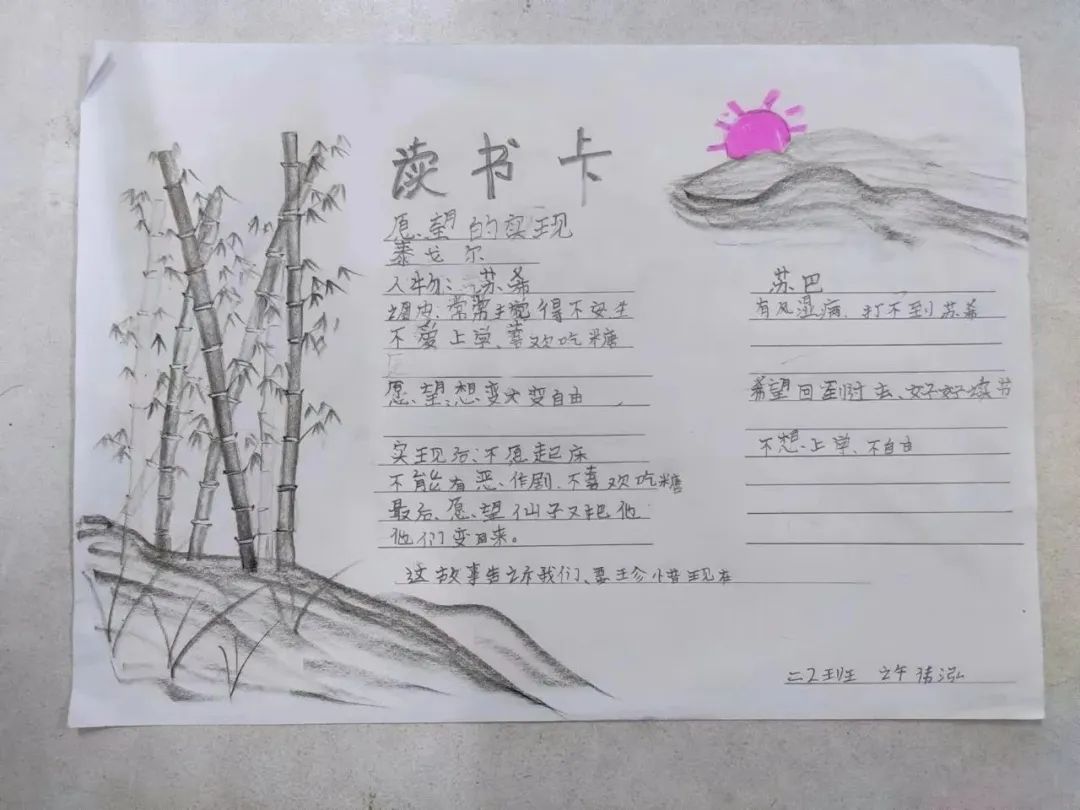 读书卡
愿望的实现
泰戈尔
人物：苏希
调皮、常常觉得不安生
不爱上学、喜欢吃糖
愿望：想变大变自由
实现后：不愿起床
不能有恶作剧、不喜欢吃糖
最后、愿望仙子又把他
他们变回来。
苏巴
有风湿病、打不到苏希
希望回到过去、好好读书
不想上学、不自由
这故事告诉我们、要珍惜现在
二2班